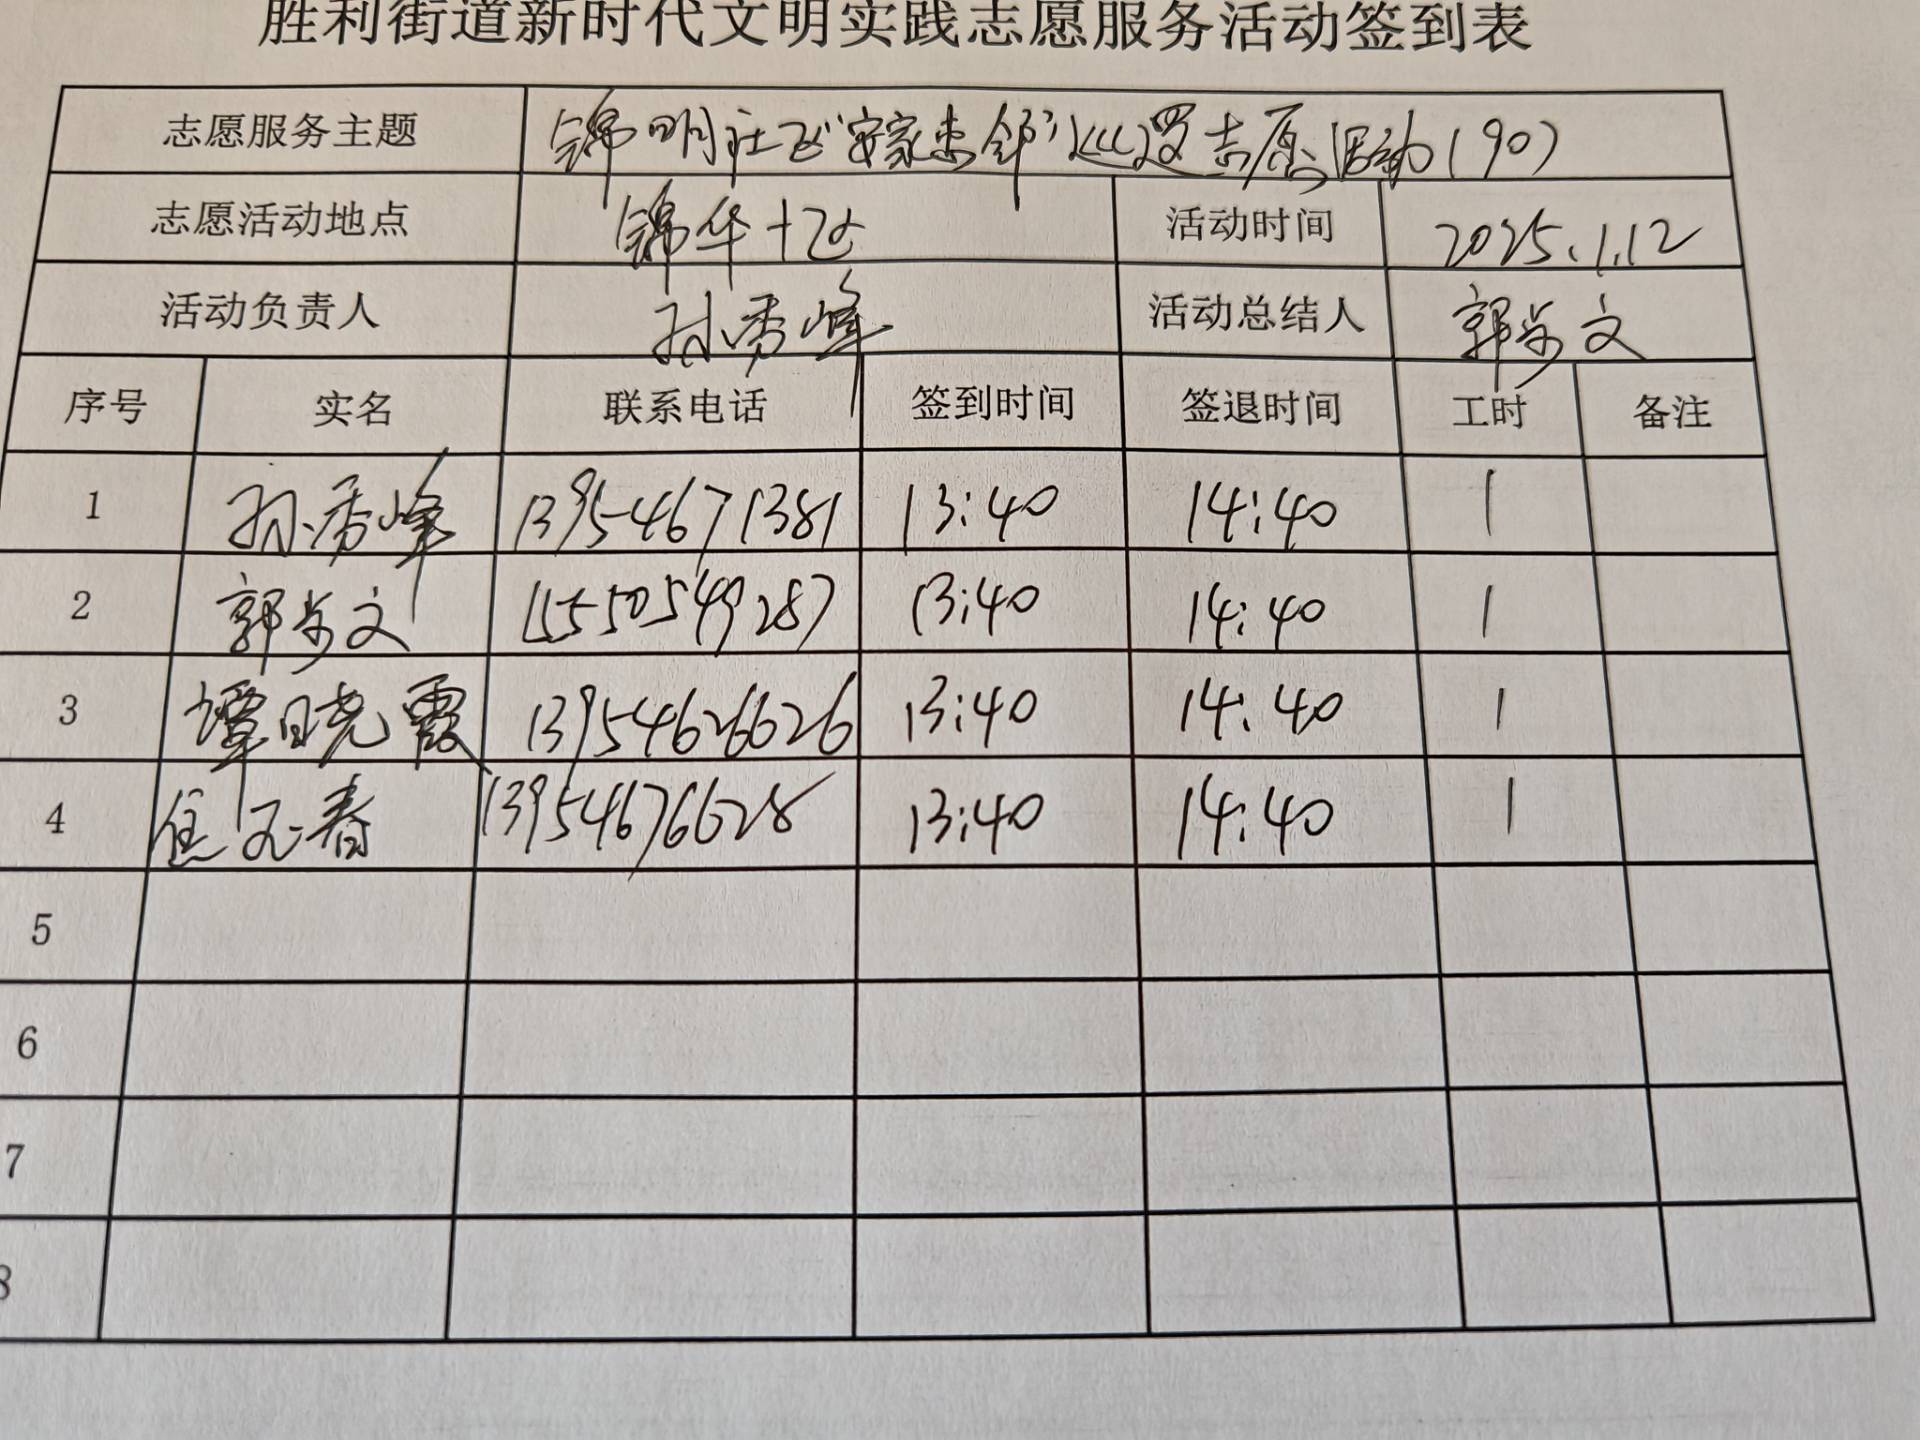 胜利街道新时代文明实践志愿服务活动签到表
志愿服务主题 锦明社区"安家惠邻"巡逻志愿活动(90)
志愿活动地点 锦华十区 活动时间 2025.1.12
活动负责人 孙秀峰 活动总结人 郭步文
序号 实名 联系电话 签到时间 签退时间 工时 备注
1 孙秀峰 13954671381 13:40 14:40 1
2 郭步文 15550549287 13:40 14:40 1
3 谭晓霞 13954626626 13:40 14:40 1
4 春 13954676628 13:40 14:40 1
5
6
7
8